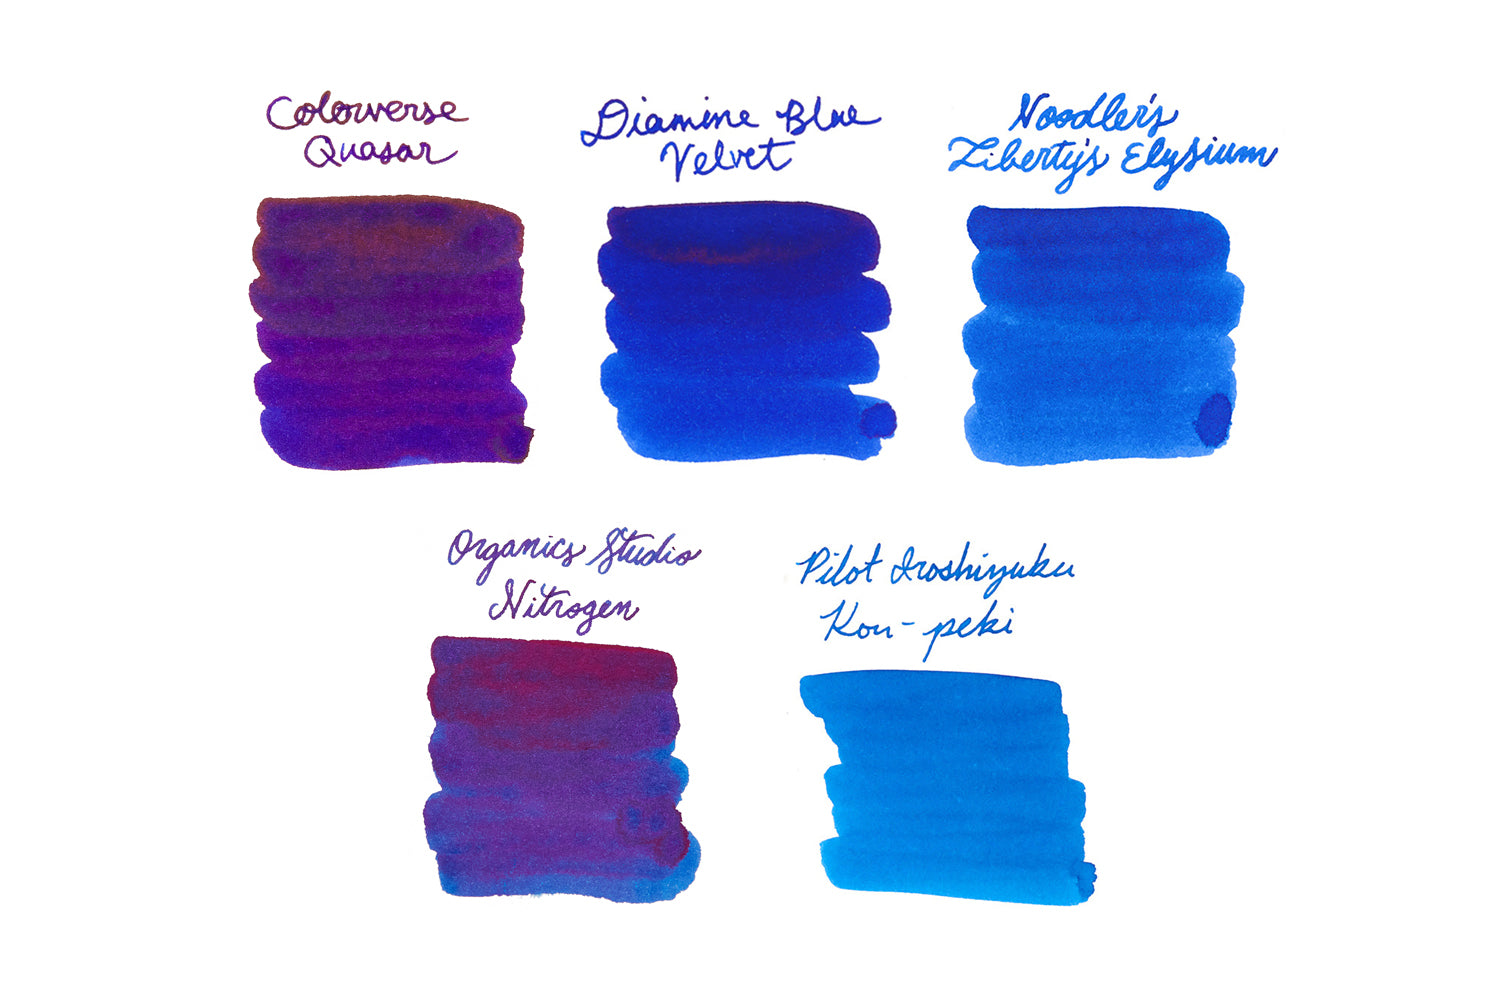 Colorverse
Quasar
Diamine Blue
Velvet
Noodler's
Liberty's Elysium
Organics Studio
Nitrogen
Pilot Iroshizuku
Kon-peki